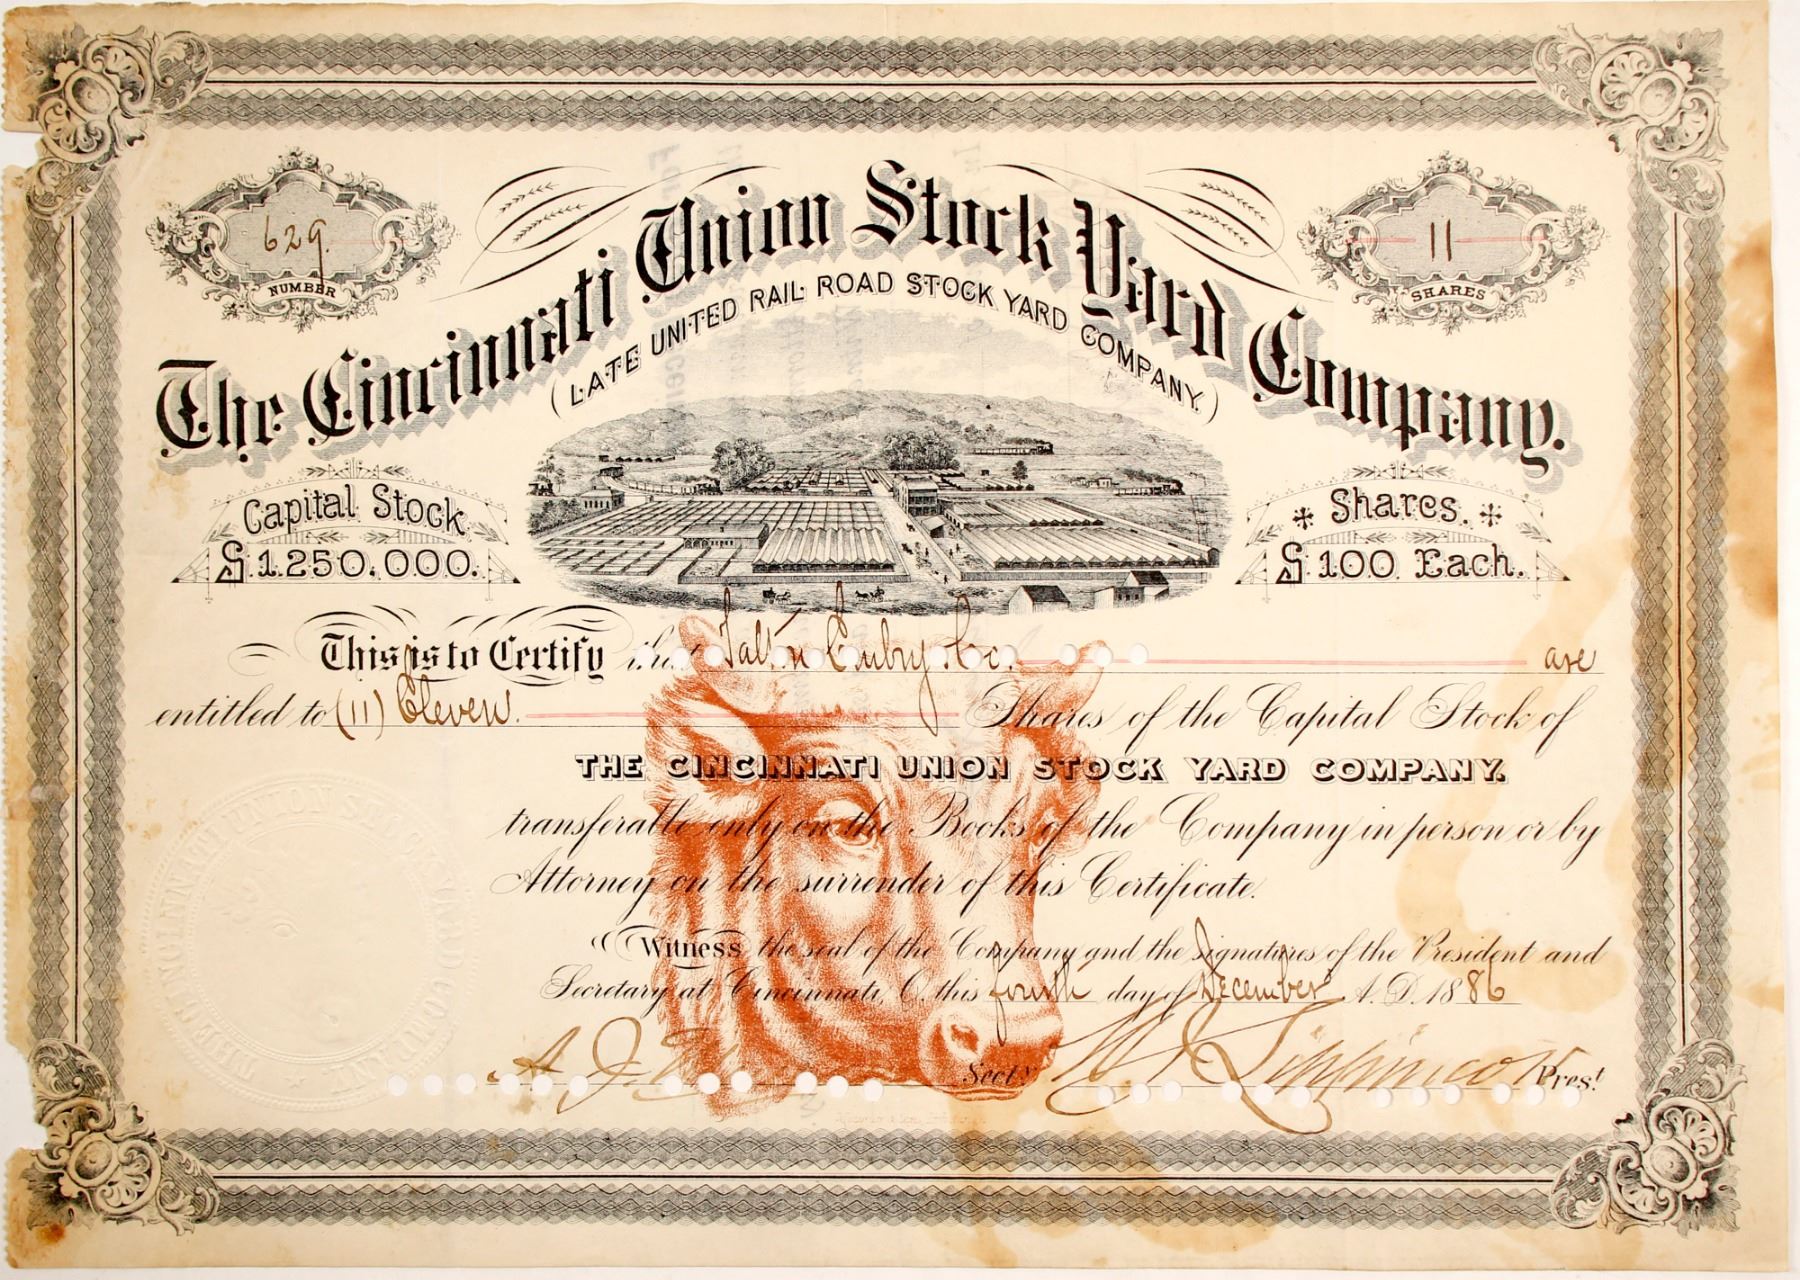 629.
NUMBER
11
SHARES
The Cincinnati Union Stock Yard Company.
(LATE UNITED RAIL ROAD STOCK YARD COMPANY.)
Capital Stock
$1.250.000.
Shares.
$100 Each.
This is to Certify that Embry & Co. are
entitled to (11) Eleven. Shares of the Capital Stock of
THE CINCINNATI UNION STOCK YARD COMPANY.
transferable only on the Books of the Company in person or by
Attorney on the surrender of this Certificate.
Witness the seal of the Company and the signatures of the President and
Secretary at Cincinnati, O. this fourth day of December A.D. 1886
A. J. Secty. Lippincott Prest.
THE CINCINNATI UNION STOCK YARD COMPANY